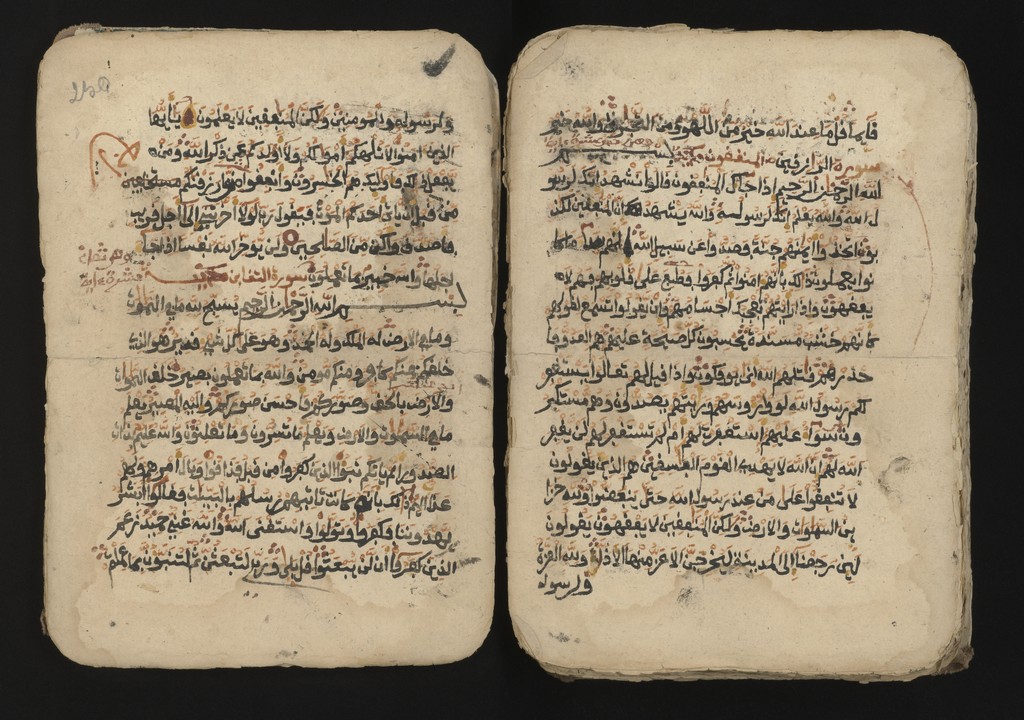 قايما قل ما عند الله خير من اللهو ومن التجرة والله خير
الرازقين سورة المنفقون مدنية
الله الرحمن الرحيم اذا جاك المنفقون قالوا نشهد انك لرسو
ل الله والله يعلم انك لرسوله والله يشهد ان المنفقين لكذ
بون اتخذوا ايمنهم جنة فصدوا عن سبيل الله انهم سا ما كا
نوا يعملون ذلك بانهم امنوا ثم كفروا فطبع على قلوبهم فهم لا
يفقهون واذا رايتهم تعجبك اجسامهم وان يقولوا تسمع لقولهم
كانهم خشب مسندة يحسبون كل صيحة عليهم هم العدو فا
حذرهم قتلهم الله انى يوفكون واذا قيل لهم تعالوا يستغفر
لكم رسول الله لووا روسهم ورايتهم يصدون وهم مستكبر
ون سوآ عليهم استغفرت لهم ام لم تستغفر لهم لن يغفر
الله لهم ان الله لا يهدى القوم الفسقين هم الذين يقولون
لا تنفقوا على من عند رسول الله حتى ينفضوا ولله خزا
ين السموت والارض ولكن المنفقين لا يفقهون يقولون
لين رجعنا الى المدينة ليخرجن الاعز منها الاذل ولله العزة
ولرسوله
ولرسوله وللمومنين ولكن المنفقين لا يعلمون يايها
الذين امنوا لا تلهكم امولكم ولا اولدكم عن ذكر الله ومن
يفعل ذلك فاوليك هم الخسرون وانفقوا من ما رزقنكم
من قبل ان ياتى احدكم الموت فيقول رب لولا اخرتنى الى اجل قريب
فاصدق واكن من الصلحين ولن يوخر الله نفسا اذا جا
اجلها والله خبير بما تعملون سورة التغابن
بسم الله الرحمن الرحيم يسبح لله ما فى السموت
وما فى الارض له الملك وله الحمد وهو على كل شى قدير هو الذى
خلقكم فمنكم كافر ومنكم مومن والله بما تعملون بصير خلق السموت
والارض بالحق وصوركم فاحسن صوركم واليه المصير يعلم
ما فى السموت والارض ويعلم ما تسرون وما تعلنون والله عليم بذات
الصدور الم ياتكم نبوا الذين كفروا من قبل فذاقوا وبال امرهم ولهم
عذاب اليم ذلك بانه كانت تاتيهم رسلهم بالبينت فقالوا ابشر
يهدوننا فكفروا وتولوا واستغنى الله والله غنى حميد زعم
الذين كفروا ان لن يبعثوا قل بلى وربى لتبعثن ثم لتنبون بما عملتم